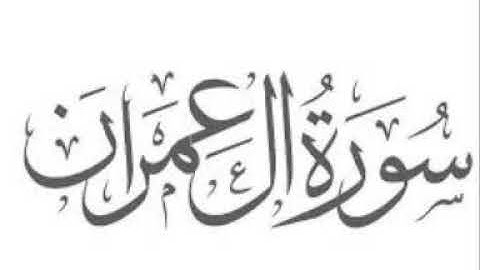 سُورَةُ اٰل عِمۡرَانَ